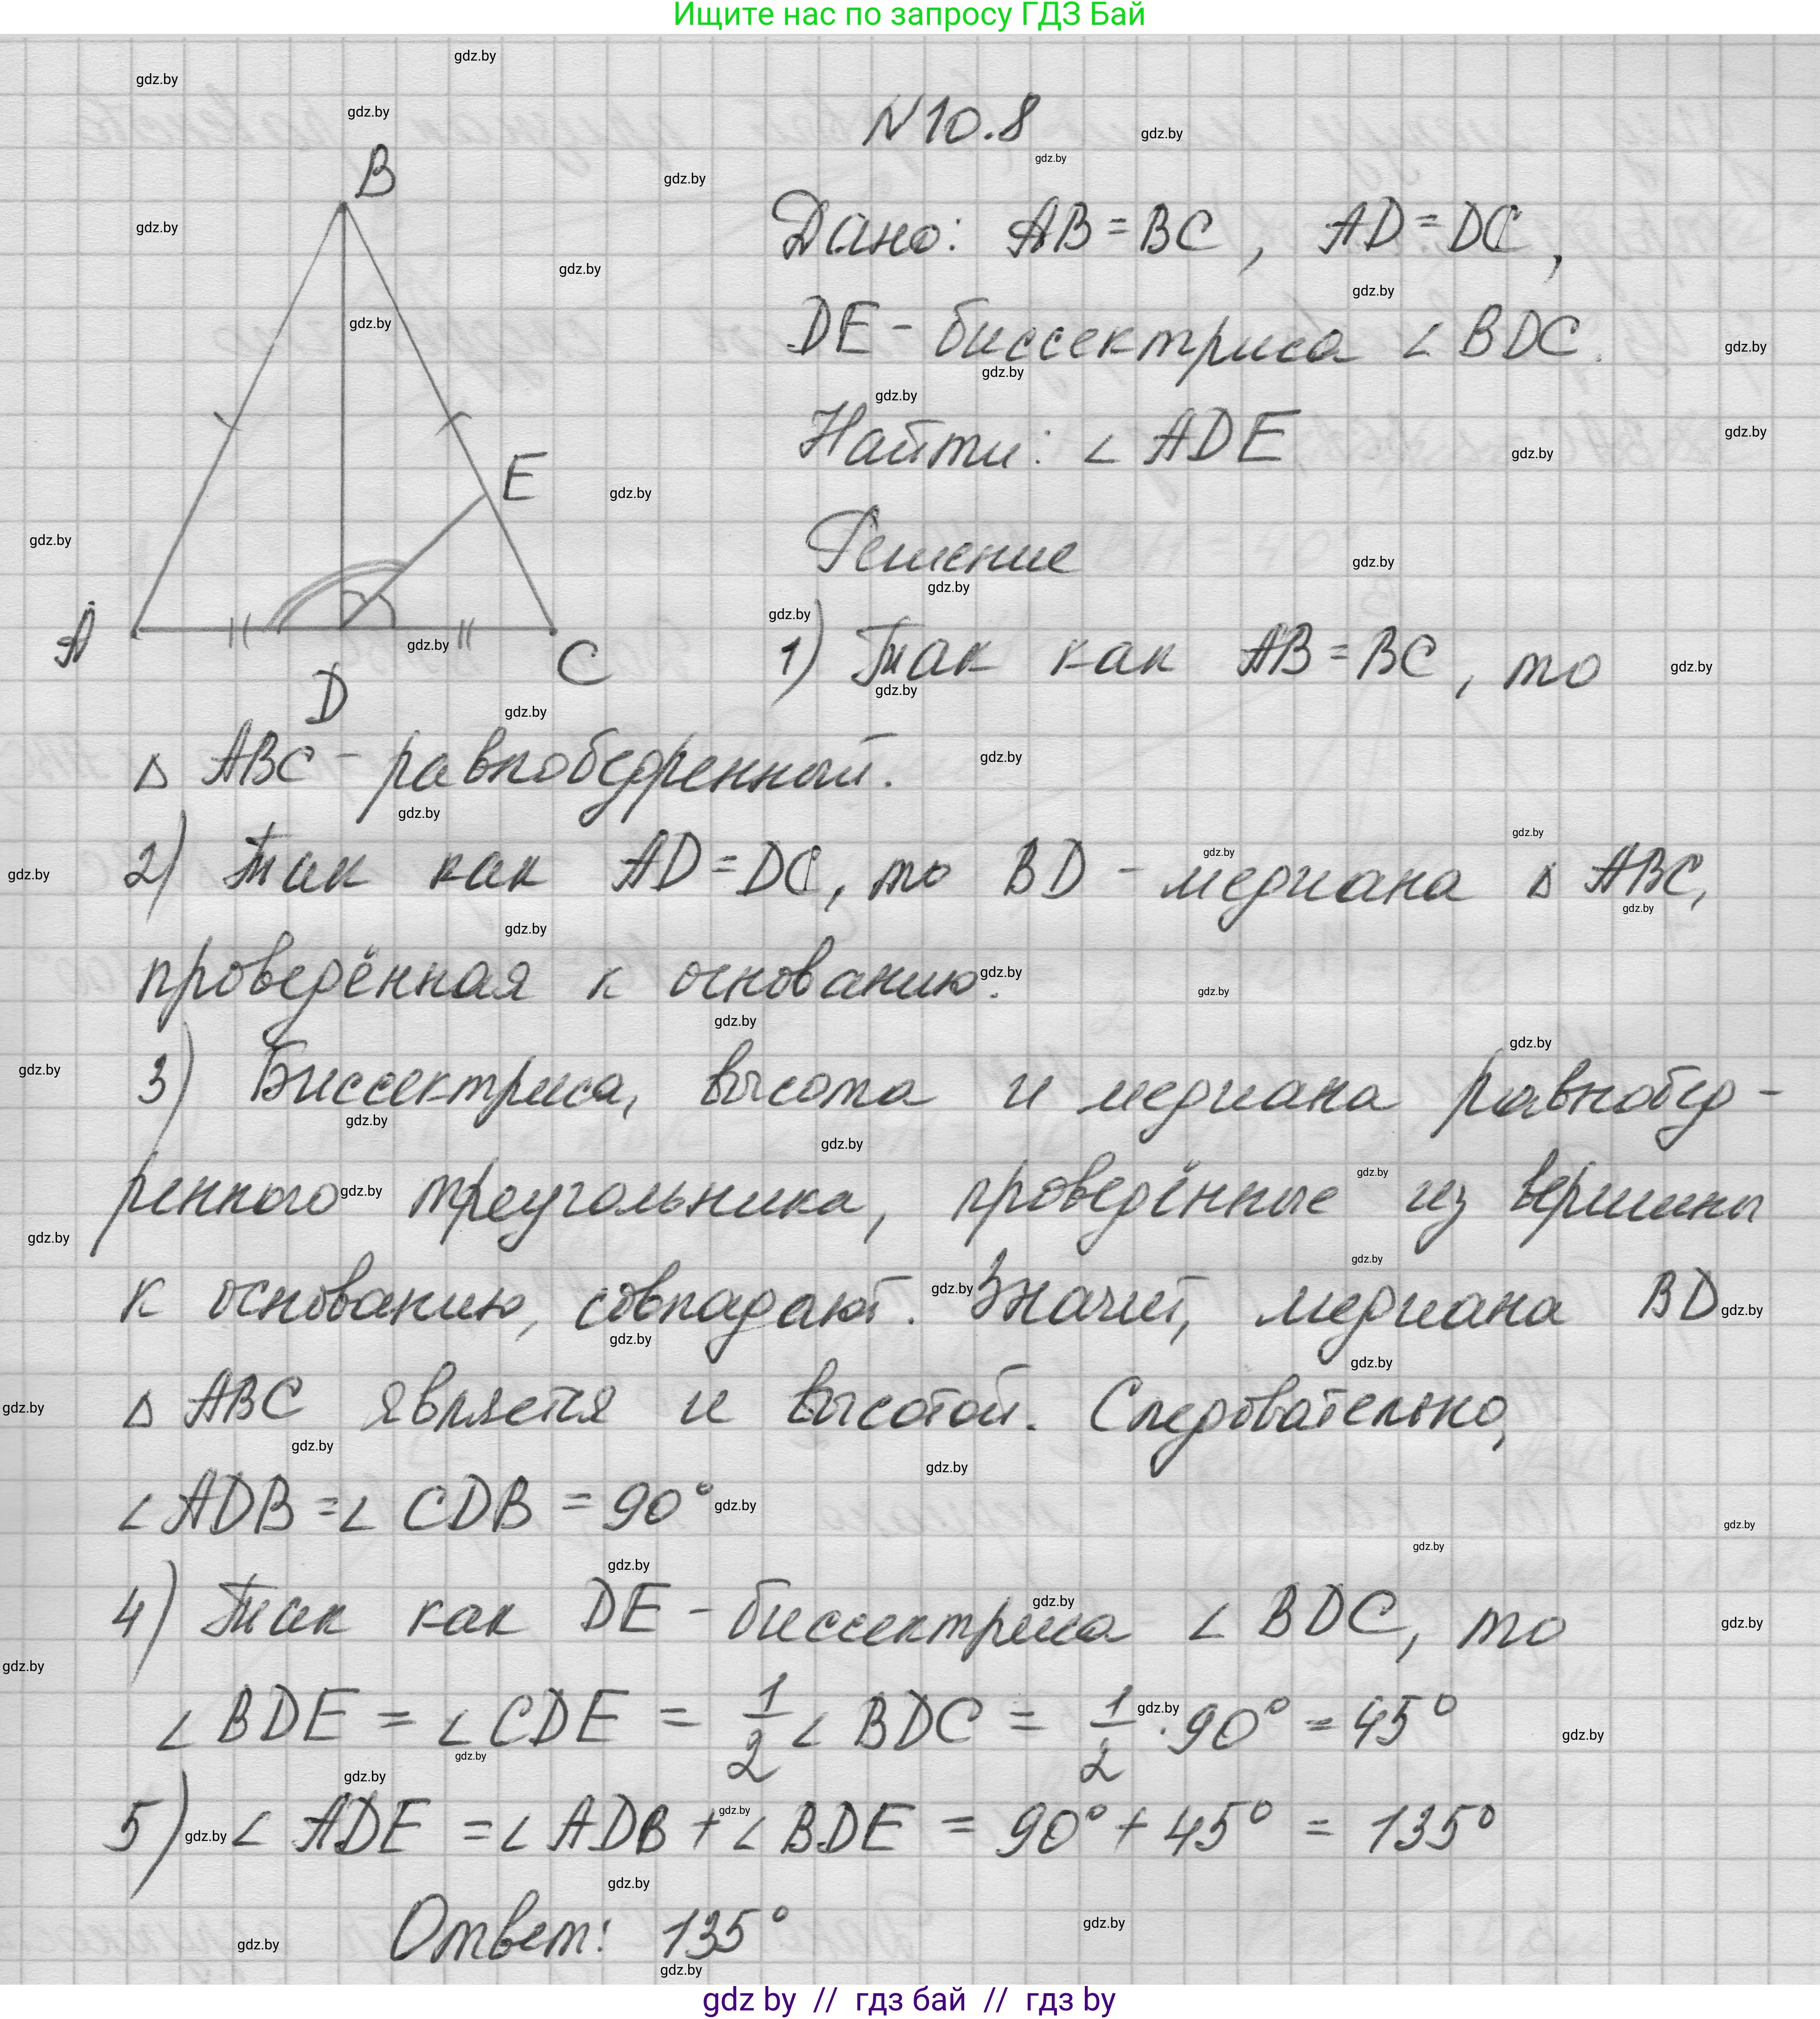 Ищите нас по запросу ГДЗ Бай
N10.8
Дано: AB = BC, AD = DC,
DE - биссектриса ∠ BDC.
Найти: ∠ ADE
Решение
B
E
A
D
C
1) Так как AB = BC, то
△ ABC - равнобедренный.
2) Так как AD = DC, то BD - медиана △ ABC,
проведённая к основанию.
3) Биссектриса, высота и медиана равнобед-
ренного треугольника, проведённые из вершины
к основанию, совпадают. Значит, медиана BD
△ ABC является и высотой. Следовательно,
∠ ADB = ∠ CDB = 90°
4) Так как DE - биссектриса ∠ BDC, то
∠ BDE = ∠ CDE = 1/2 ∠ BDC = 1/2 · 90° = 45°
5) ∠ ADE = ∠ ADB + ∠ BDE = 90° + 45° = 135°
Ответ: 135°
gdz by // гдз бай // гдз by